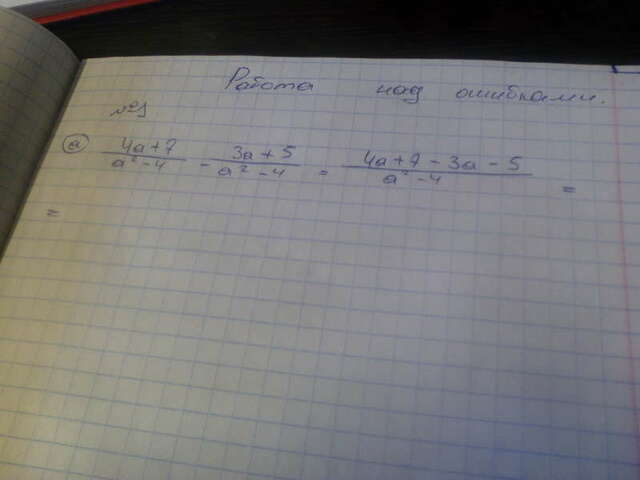 Работа над ошибками.
№1.
а) (4a+7)/(a²-4) - (3a+5)/(a²-4) = (4a+7-3a-5)/(a²-4) =
=